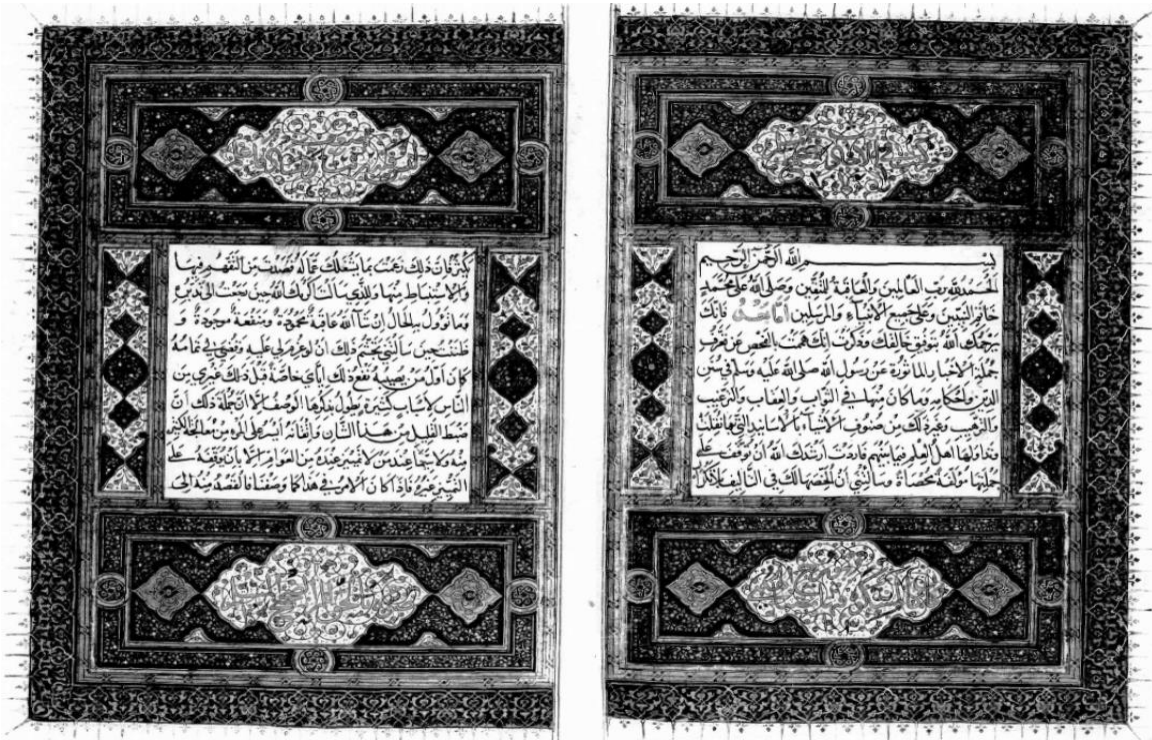 بسم الله الرحمن الرحيم
الحمد لله رب العالمين والعاقبة للمتقين وصلى الله على محمد
خاتم النبيين وعلى جميع الانبياء والمرسلين اما بعد فانك
يرحمك الله بتوفيق خالقك وذكرت انك هممت بالفحص عن تعرف
جملة الاخبار الماثورة عن رسول الله صلى الله عليه وسلم في سنن
الدين واحكامه وما كان منها في الثواب والعقاب والترغيب
والترهيب وغير ذلك من صنوف الاشياء بالاسانيد التي بها نقلت
وتداولها اهل العلم فيما بينهم فاردت ارشدك الله ان توقف على
جملتها مؤلفة محصاة وسالتني ان الخصها لك في التاليف بلا تكرار
يكثر فان ذلك زعمت مما يشغلك عما له قصدت من التفهم فيها
والاستنباط منها وللذي سالت اكرمك الله حين رجعت الى تدبره
وما تؤول به الحال ان شاء الله عاقبة محمودة ومنفعة موجودة و
ظننت حين سالتني تجشم ذلك ان لو عزم لي عليه وقضي لي تمامه
كان اول من يصيبه نفع ذلك اياي خاصة قبل ذلك غيري من
الناس لاسباب كثيرة يطول بذكرها الوصف الا ان جملة ذلك ان
ضبط القليل من هذا الشان واتقانه ايسر على المرء من معالجة الكثير
منه ولا سيما عند من لا تمييز عنده من العوام الا بان يوقفه على
التمييز غيره فاذا كان الامر في هذا كما وصفنا فالقصد منه الى